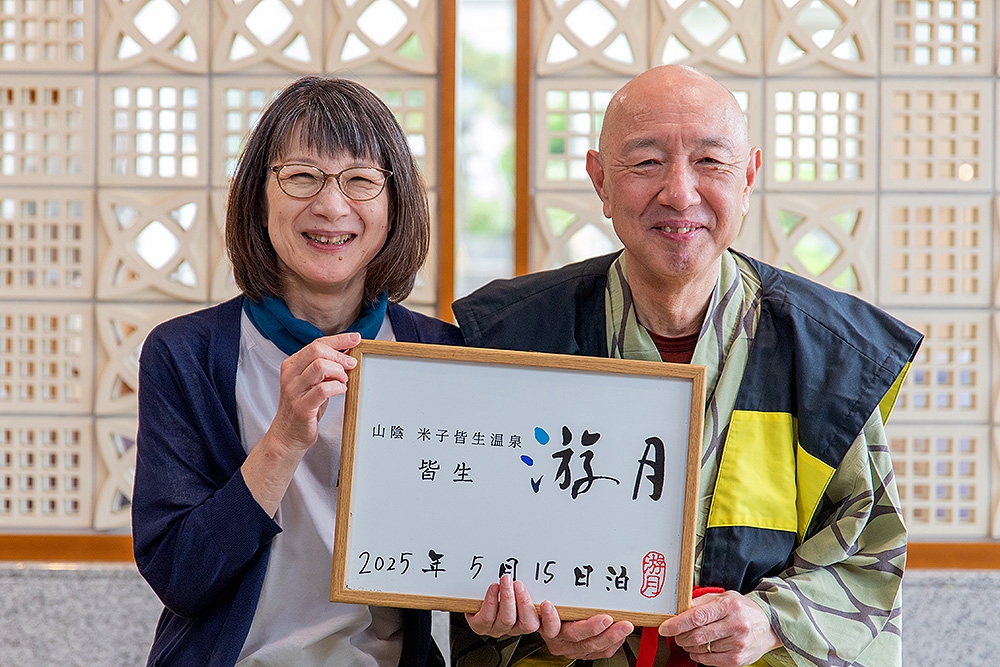 山陰 米子皆生温泉
皆生 游月
2025年 5月15日泊 游月